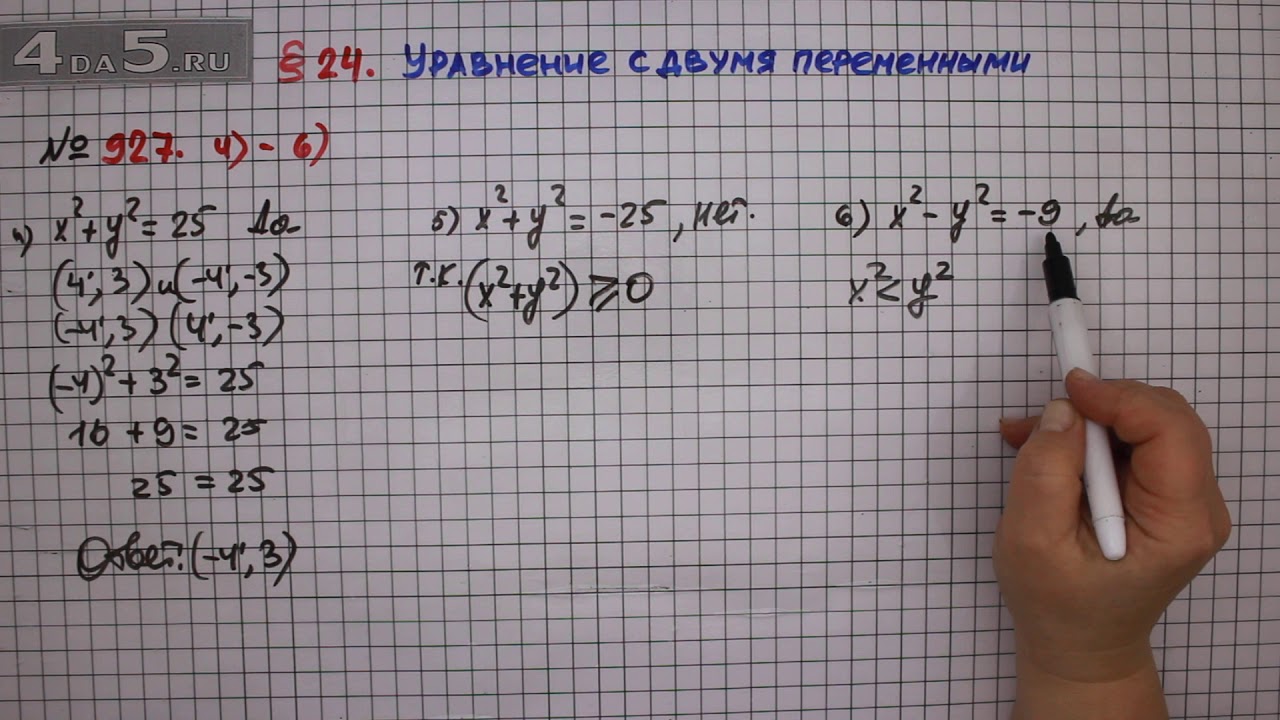 4DA5.RU
§ 24. Уравнение с двумя переменными
№ 927. 4) - 6)
4) x² + y² = 25 Да
(4; 3) и (-4; -3)
(-4; 3) (4; -3)
(-4)² + 3² = 25
16 + 9 = 25
25 = 25
Ответ: (-4; 3)
5) x² + y² = -25, нет.
т.к. (x² + y²) ⩾ 0
6) x² - y² = -9, да
x² < y²